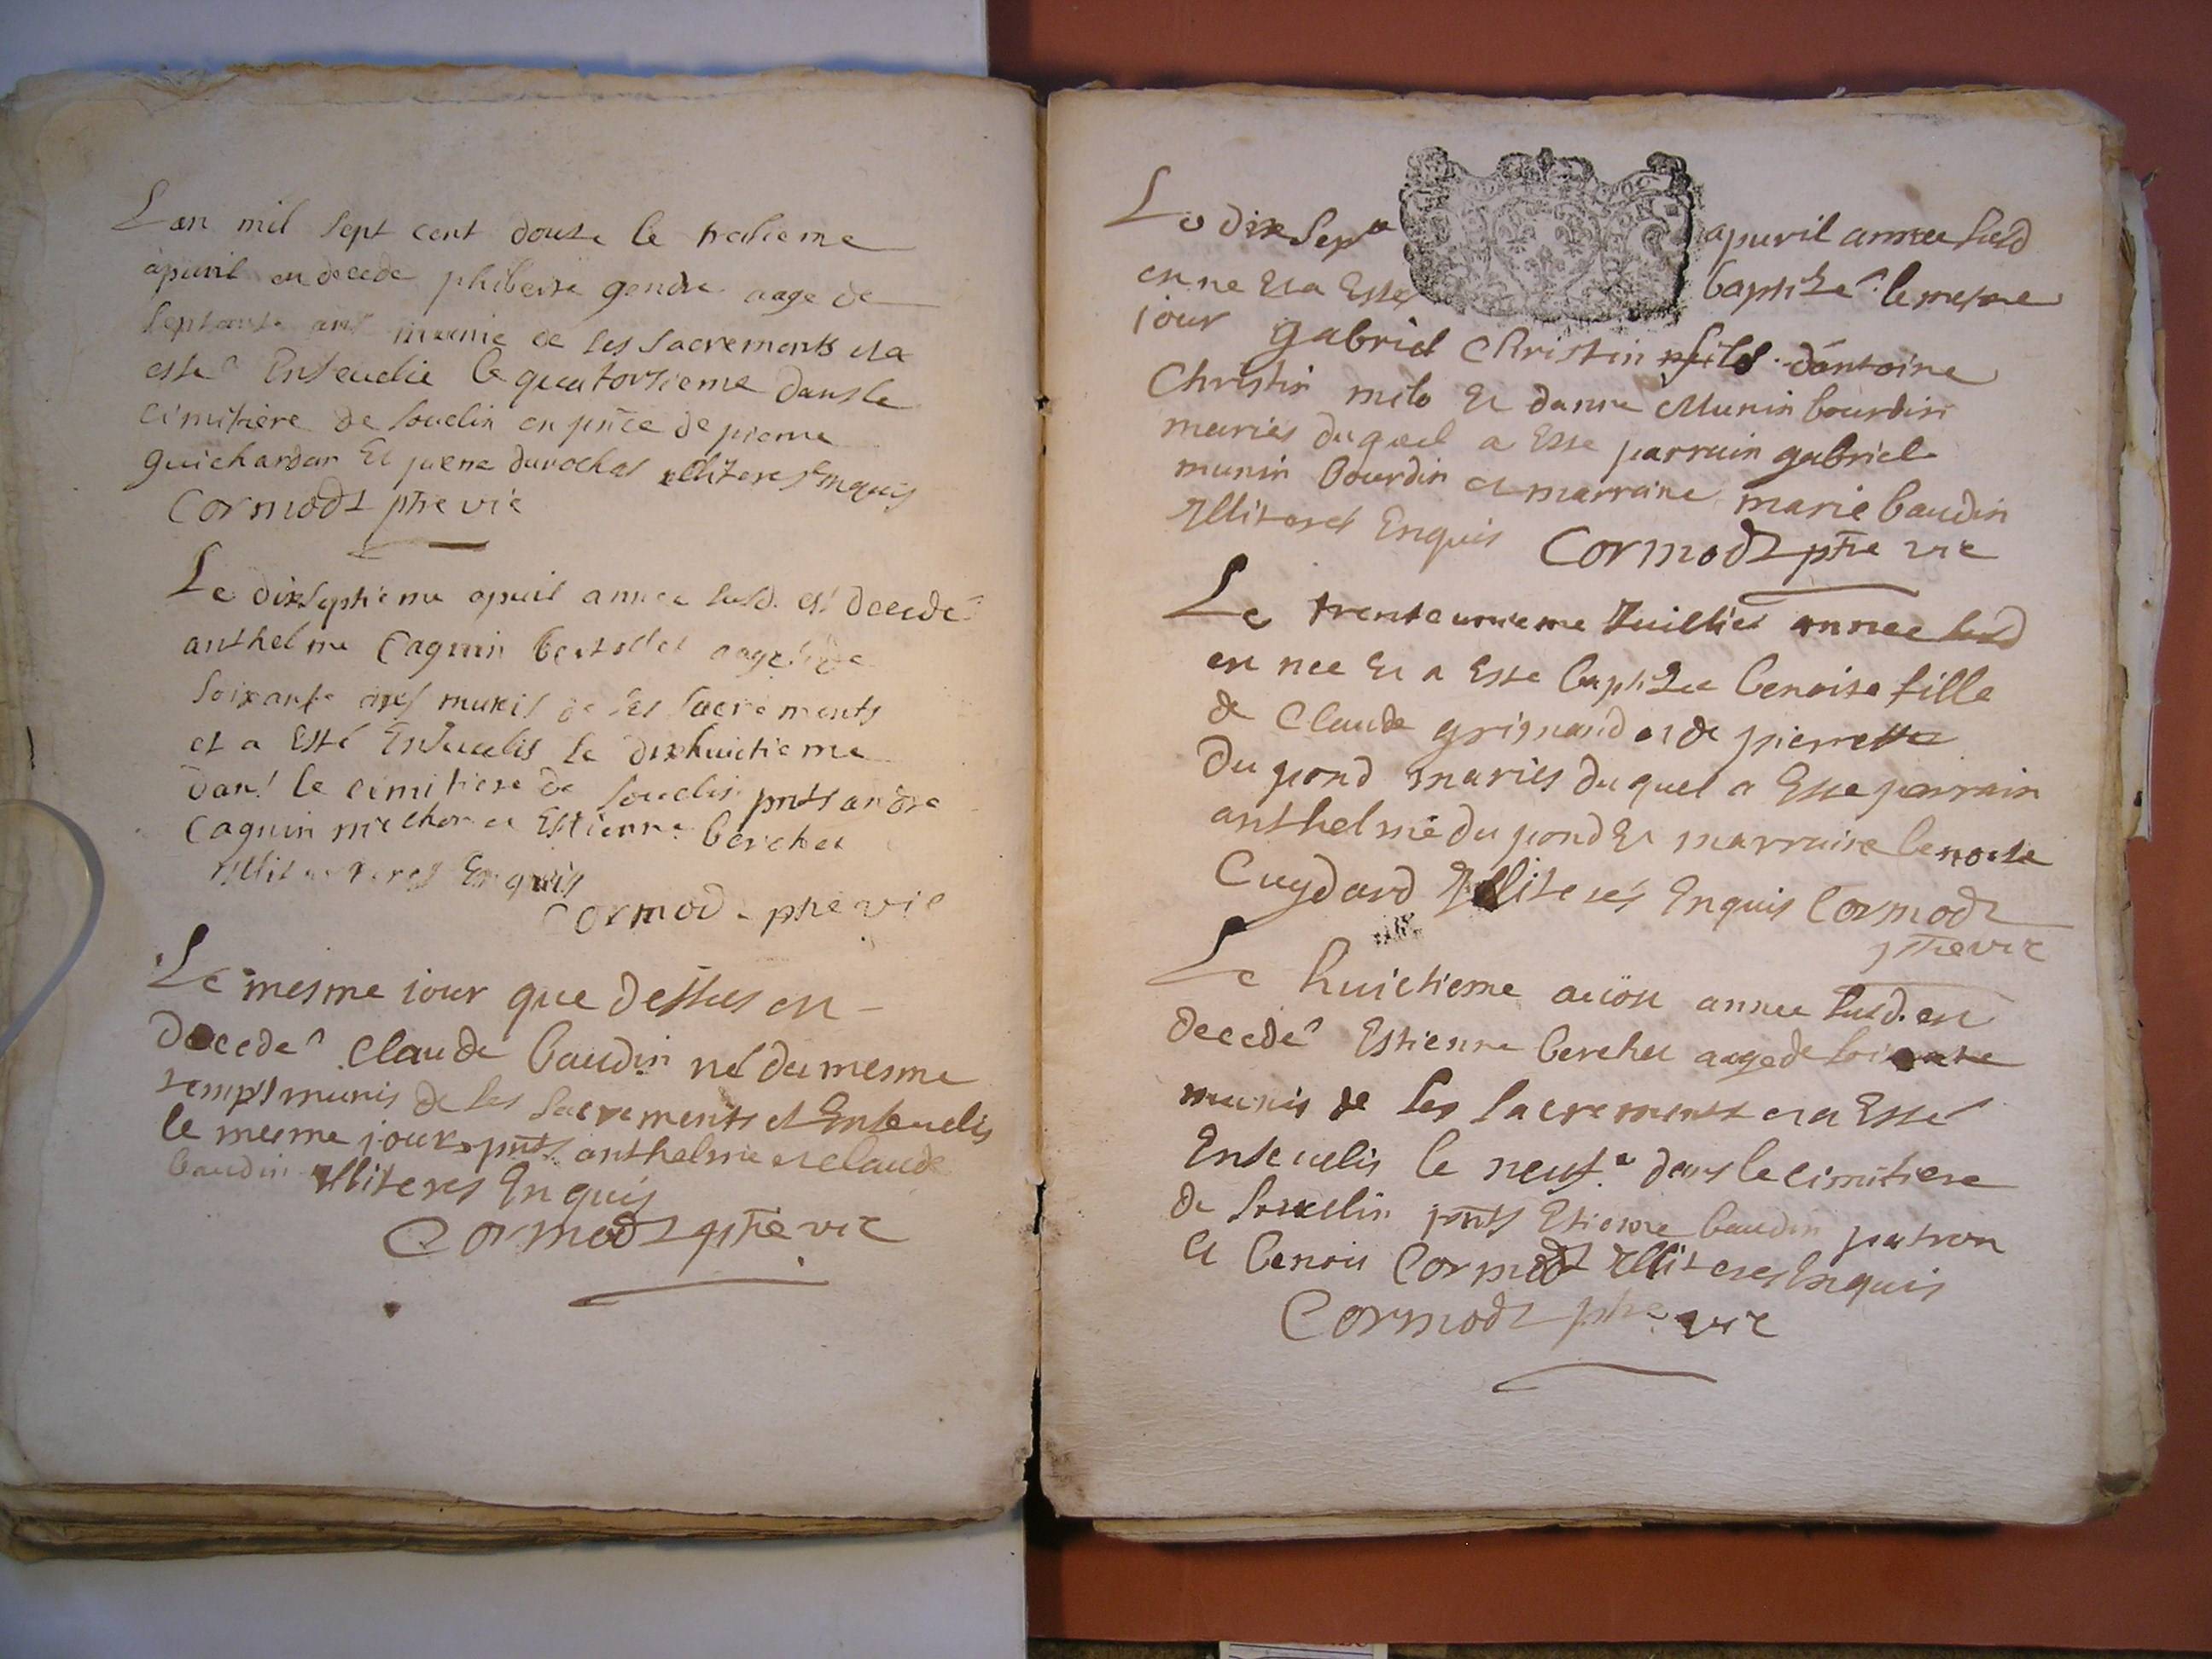 Lan mil sept cent douze le treshieme
apuril en decede philberte gendre aage de
septante ans munie de ses sacrements et a
esté Ensevelie le quatorsieme dans le
cimitière de souclin en pnce de pierre
guichardan Et pierre durochas illiteres enquis
Cormodz ptre vic
Le dixseptieme apuril annee susd est decedé
anthelme Cagnin aagé de
soixante ans munis de ses sacrements
et a Esté Ensevelis le dixhuictieme
dans le cimitiere de souclin pnts andre
Cagnin et Estienne berchet
illiteres Enquis
Cormodz ptre vic
Le mesme iour que dessus en
decedé Claude baudin né du mesme
temps munis de ses sacrements et Ensevelis
le mesme jour pnts anthelme et claude
baudin illiteres Enquis
Cormodz ptre vic
Le dix sepe apuril annee susd
en ne Et a Esté baptizé le mesme
iour gabriel Christin fils dantoine
Christin Et danne Munin bourdin
mariés duquel a Esté parrain gabriel
munin bourdin et marraine marie baudin
Illiteres Enquis Cormodz ptre vic
Le trenteunieme Juilliet annee susd
en nee Et a Esté baptizee benoite fille
de Claude grignand et de pierrette
Du pond mariés duquel a Esté parrain
anthelme du pond Et marraine benoite
Cuydard Illiterés Enquis Cormodz
ptre vic
Le huictieme aoust annee susd. en
decedé Estienne berchet aagé de soixante
munis de ses sacrements et a Esté
Ensevelis le neufe dans le cimitiere
de souclin pnts Etienne baudin patron
Et benoit Cormodz Illiteres Enquis
Cormodz ptre vic